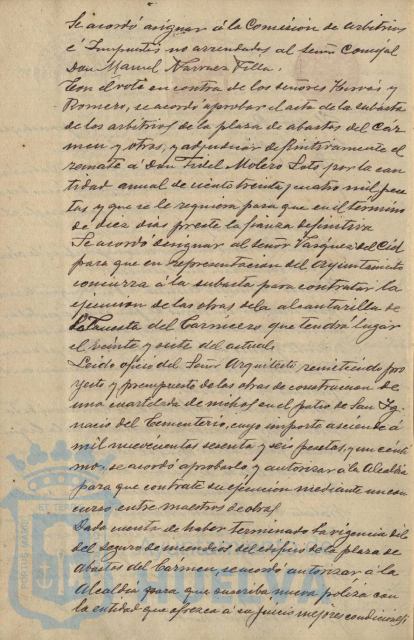 Se acordó asignar á la Comisión de Arbitrios
é Impuestos no arrendados al señor Concejal
Don Manuel Narvaez Villa.
Con el voto en contra de los señores y
Romero, se acordó aprobar el acta de la subasta
de los arbitrios de la plaza de abastos del Cár-
men y otros, y adjudicar definitivamente el
remate á Don Fidel Molero Soto por la can-
tidad anual de ciento treinta y cuatro mil pese-
tas y que se le requiera para que en el término
de diez dias preste la fianza definitiva
Se acordó designar al señor Vazquez del Cid
para que en representación del Ayuntamiento
concurra á la subasta para contratar la
ejecución de las obras de la alcantarilla de
la Cuesta del Carnicero que tendrá lugar
el veinte y siete del actual.
Leido oficio del Señor Arquitecto remitiendo pro-
yecto y presupuesto de las obras de construcción de
una cuartelada de nichos en el patio de San Ig-
nacio del Cementerio, cuyo importe asciende á
mil nuevecientos sesenta y seis pesetas, y un cénti-
mo, se acordó aprobarlo y autorizar á la Alcaldía
para que contrate su ejecución mediante un con-
curso entre maestros de obras
Dada cuenta de haber terminado la vigencia del
del seguro de incendios del edificio de la plaza de
Abastos del Carmen, se acordó autorizar á la
Alcaldía para que suscriba nueva póliza con
la entidad que ofrezca á su juicio mejores condiciones.
PORTUS MARIS
ET TERR
HUELVA